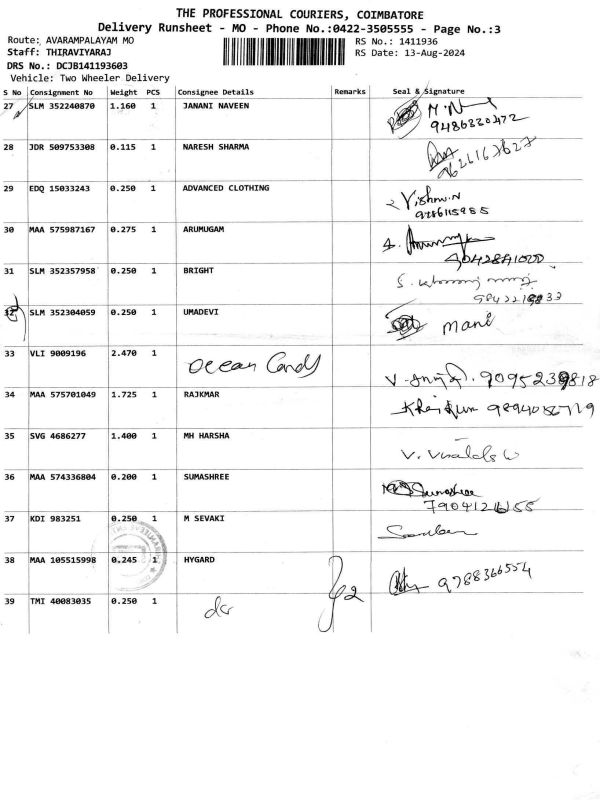 THE PROFESSIONAL COURIERS, COIMBATORE
Delivery Runsheet - MO - Phone No.:0422-3505555 - Page No.:3
Route: AVARAMPALAYAM MO
RS No.: 1411936
Staff: THIRAVIYARAJ
RS Date: 13-Aug-2024
DRS No.: DCJB141193603
Vehicle: Two Wheeler Delivery
S No Consignment No Weight PCS Consignee Details Remarks Seal & Signature
27 SLM 352240870 1.160 1 JANANI NAVEEN
9486330472
28 JDR 509753308 0.115 1 NARESH SHARMA
29 EDQ 15033243 0.250 1 ADVANCED CLOTHING
Vishnu.N
30 MAA 575987167 0.275 1 ARUMUGAM
31 SLM 352357958 0.250 1 BRIGHT
32 SLM 352304059 0.250 1 UMADEVI
mani
33 VLI 9009196 2.470 1 Ocean Candy
34 MAA 575701049 1.725 1 RAJKMAR
35 SVG 4686277 1.400 1 MH HARSHA
36 MAA 574336804 0.200 1 SUMASHREE
Sumashree
37 KDI 983251 0.250 1 M SEVAKI
38 MAA 105515998 0.245 1 HYGARD
9788366554
39 TMI 40083035 0.250 1